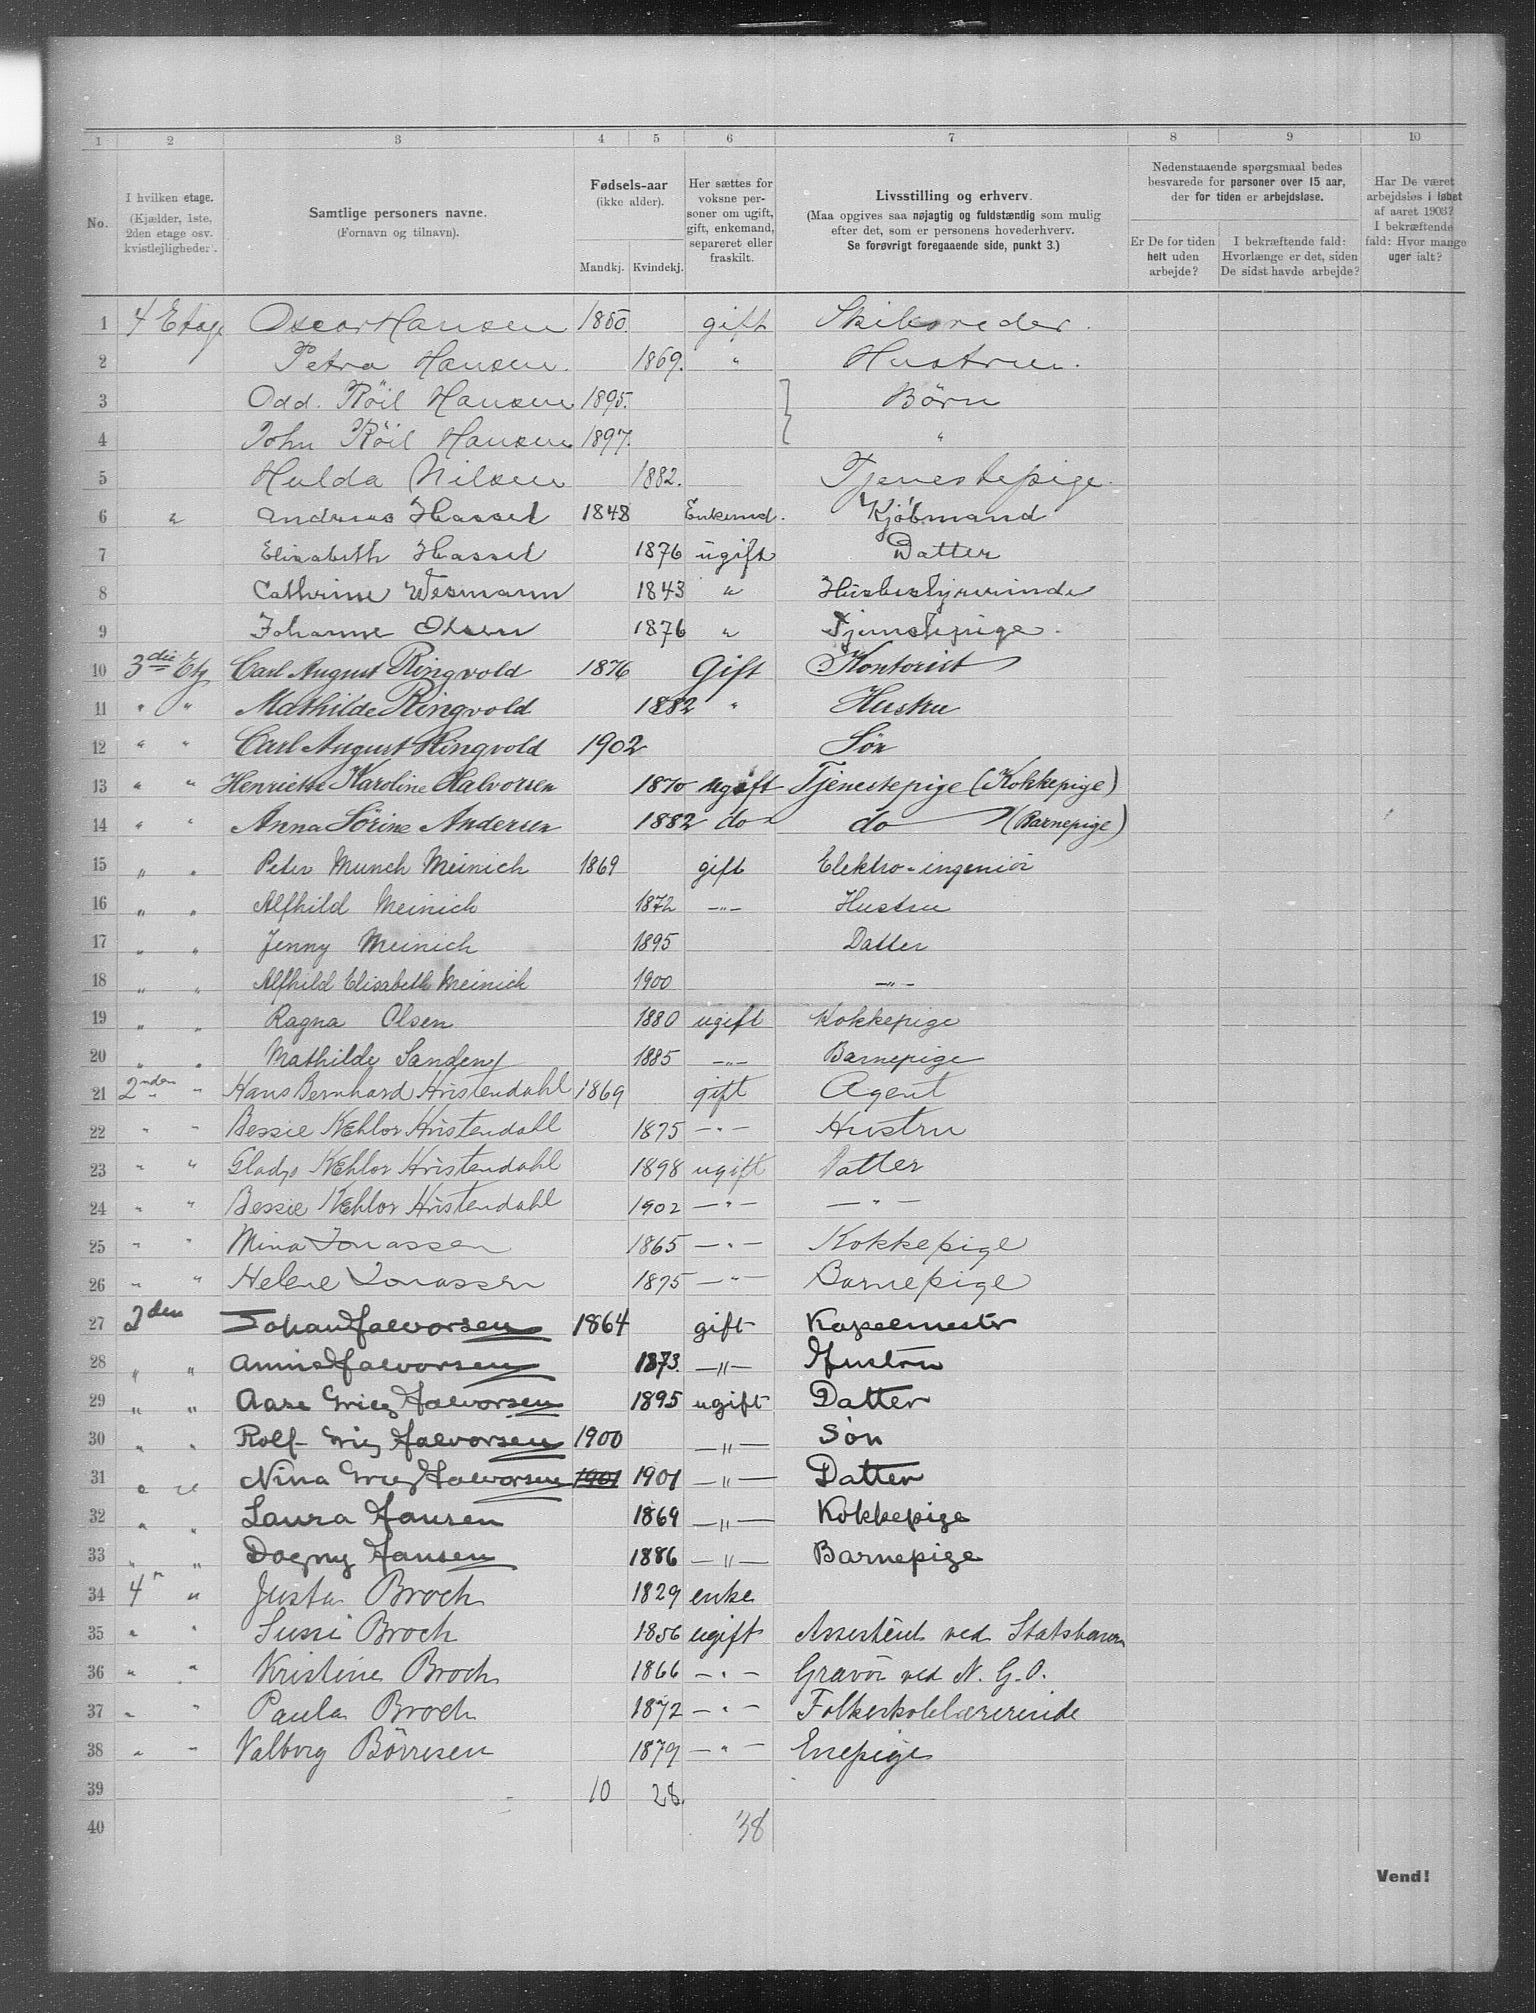 1 2 3 4 5 6 7 8 9 10
No. I hvilken etage. (Kjælder, 1ste, 2den etage osv. kvistlejligheder). Samtlige personers navne. (Fornavn og tilnavn). Fødsels-aar (ikke alder). Mandkj. Kvindekj. Her sættes for voksne personer om ugift, gift, enkemand, separeret eller fraskilt. Livsstilling og erhverv. (Maa opgives saa nøjagtig og fuldstændig som mulig efter det, som er personens hovederhverv. Se forøvrigt foregaaende side, punkt 3.) Nedenstaaende spørgsmaal bedes besvarede for personer over 15 aar, der for tiden er arbejdsløse. Er De for tiden helt uden arbejde? I bekræftende fald: Hvorlænge er det, siden De sidst havde arbejde? Har De været arbejdsløs i løbet af aaret 1903? I bekræftende fald: Hvor mange uger ialt?
1 4 Etage Oscar Hansen 1860. gift Skibsreder.
2 Petra Hansen. 1869. " Hustru.
3 Odd. Röil Hansen 1895. Børn
4 John Röil Hansen 1897. "
5 Hulda Nilsen 1882. Tjenestepige.
6 " Andreas Hassel 1848 Enkemd. Kjøbmand
7 Elisabeth Hassel 1876 ugift Datter
8 Cathrine Wesmann 1843 " Husbestyrerinde
9 Johanne Olsen 1876 " Tjenestepige.
10 3die Etg Carl August Ringvold 1876 Gift Kontorist
11 " " Mathilde Ringvold 1882 " Hustru
12 " " Carl August Ringvold 1902 Sön
13 " " Henriette Karoline Halvorsen 1870 ugift Tjenestepige (Kokkepige)
14 " " Anna Sörine Andersen 1882 do do (Barnepige)
15 " " Peter Munch Meinich 1869 gift Elektro-ingeniör
16 " " Alfhild Meinich 1872 -"- Hustru
17 " " Jenny Meinich 1895 Datter
18 " " Alfhild Elisabeth Meinich 1900 -"-
19 " " Ragna Olsen 1880 ugift Kokkepige
20 " " Mathilde Sandeng 1885 -"- Barnepige
21 2nden " Hans Bernhard Hvistendahl 1869 gift Agent
22 " " Bessie Kehlor Hvistendahl 1875 -"- Hustru
23 " " Gladys Kehlor Hvistendahl 1898 ugift Datter
24 " " Bessie Kehlor Hvistendahl 1902 -"- -"-
25 " " Mina Jonassen 1865 -"- Kokkepige
26 " " Helene Jonassen 1875 -"- Barnepige
27 2den Johan Halvorsen 1864 gift Kapelmester
28 " " Annie Halvorsen 1873. -"- Hustru
29 " " Aase Grieg Halvorsen 1895 ugift Datter
30 " " Rolf Grieg Halvorsen 1900 -"- Søn
31 " " Nina Grieg Halvorsen 1901 1901 -"- Datter
32 " " Laura Hansen 1869 -"- Kokkepige
33 " " Dagny Hansen 1886 -"- Barnepige
34 4 " Justa Broch 1829 enke
35 " " Sussi Broch 1856 ugift Assistent ved Statsbanen
36 " " Kristine Broch 1866 -"- Gravör ved N. G. O.
37 " " Paula Broch 1872 -"- Folkeskolelærerinde
38 " " Valborg Börresen 1879 -"- Enepige
39 10 28.
40 38
Vend!